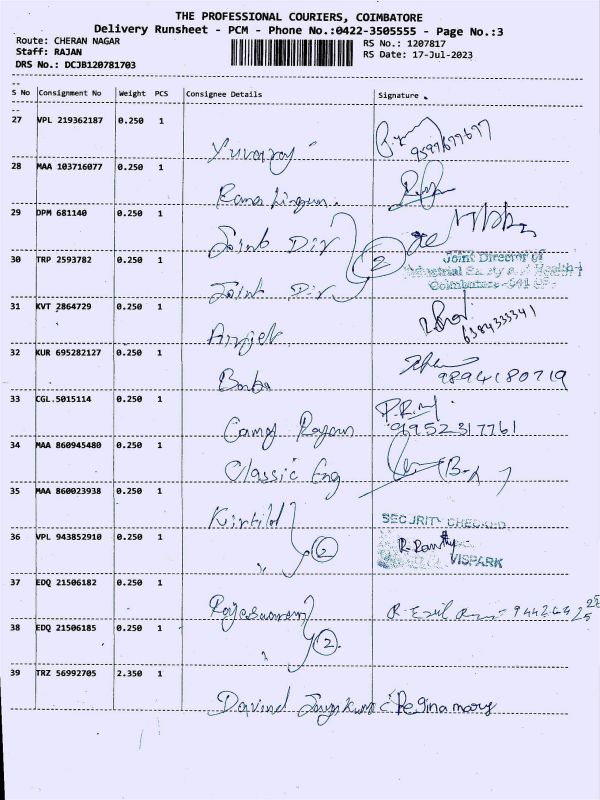 THE PROFESSIONAL COURIERS, COIMBATORE
Delivery Runsheet - PCM - Phone No.:0422-3505555 - Page No.:3
Route: CHERAN NAGAR
RS No.: 1207817
Staff: RAJAN
RS Date: 17-Jul-2023
DRS No.: DCJB120781703
S No Consignment No Weight PCS Consignee Details Signature
27 VPL 219362187 0.250 1
Yuvaraj
9597677677
28 MAA 103716077 0.250 1
29 DPM 681140 0.250 1
Joint Dir
30 TRP 2593782 0.250 1 2 Joint Director of
Industrial Safety and Health-I
Joint Dir Coimbatore-641
31 KVT 2864729 0.250 1
6384333341
32 KUR 695282127 0.250 1
9894180719
33 CGL.5015114 0.250 1 P.R.M.
9952317761
34 MAA 860945480 0.250 1
Classic Eng
35 MAA 860023938 0.250 1
SECURITY CHECKED
36 VPL 943852910 0.250 1
VISPARK
37 EDQ 21506182 0.250 1
Rajeswaran
38 EDQ 21506185 0.250 1
2
39 TRZ 56992705 2.350 1
Regina mary